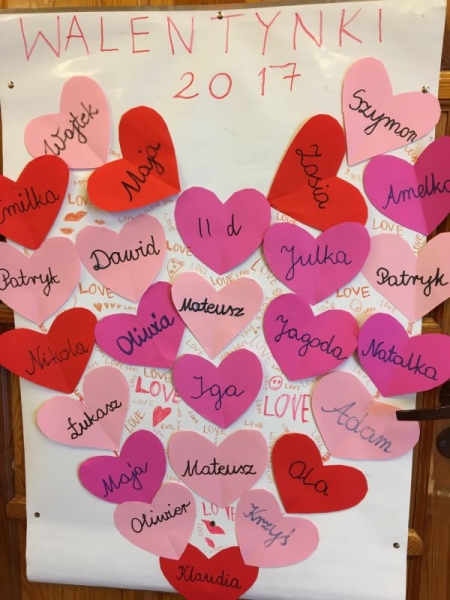 WALENTYNKI
2017
Wojtek
Szymon
Maja
Zosia
Emilka
Amelka
II d
Dawid
Julka
Patryk
Patryk
Mateusz
Oliwia
Jagoda
Nikola
Natalka
Iga
LOVE
LOVE
Łukasz
Adam
Maja
Mateusz
Ola
Oliwier
Krzyś
LOVE
Klaudia